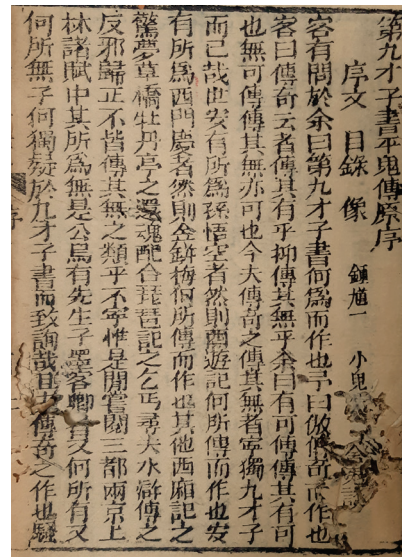 第九才子書平鬼傳原序
序文 目錄 像 鍾馗一 小鬼
客有問於余曰第九才子書何爲而作也予曰倣傳奇而作也
客曰傳奇云者傳其有乎抑傳其無乎余曰有可傳傳其有可
也無可傳傳其無亦可也今夫傳奇之傳其無者寧獨九才子
而已哉世安有所爲孫悟空者然則西遊記何所傳而作也安
有所爲西門慶者然則金鉼梅何所傳而作也其他西廂記之
驚夢草橋牡丹亭之還魂配合琵琶記之乞丐尋夫水滸傳之
反邪歸正不皆傳其無之類乎不寧惟是閒嘗閱三都兩京上
林諸賦中其所爲無是公烏有先生子墨客卿者又何所有又
何所無子何獨疑於九才子書而致詢哉且夫傳奇之作也騷